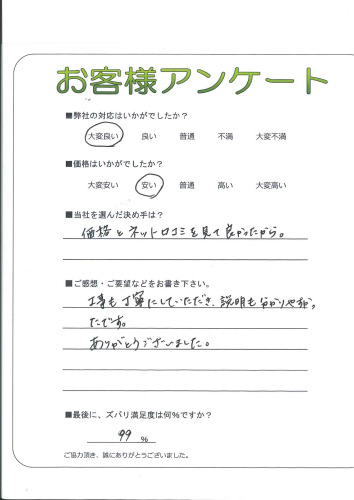 お客様アンケート
■弊社の対応はいかがでしたか?
大変良い 良い 普通 不満 大変不満
■価格はいかがでしたか?
大変安い 安い 普通 高い 大変高い
■当社を選んだ決め手は?
価格とネット口コミを見て良かったから。
■ご感想・ご要望などをお書き下さい。
工事も丁寧にしていただき、説明も分かりやすかっ
たです。
ありがとうございました。
■最後に、ズバリ満足度は何%ですか?
99 %
ご協力頂き、誠にありがとうございました。